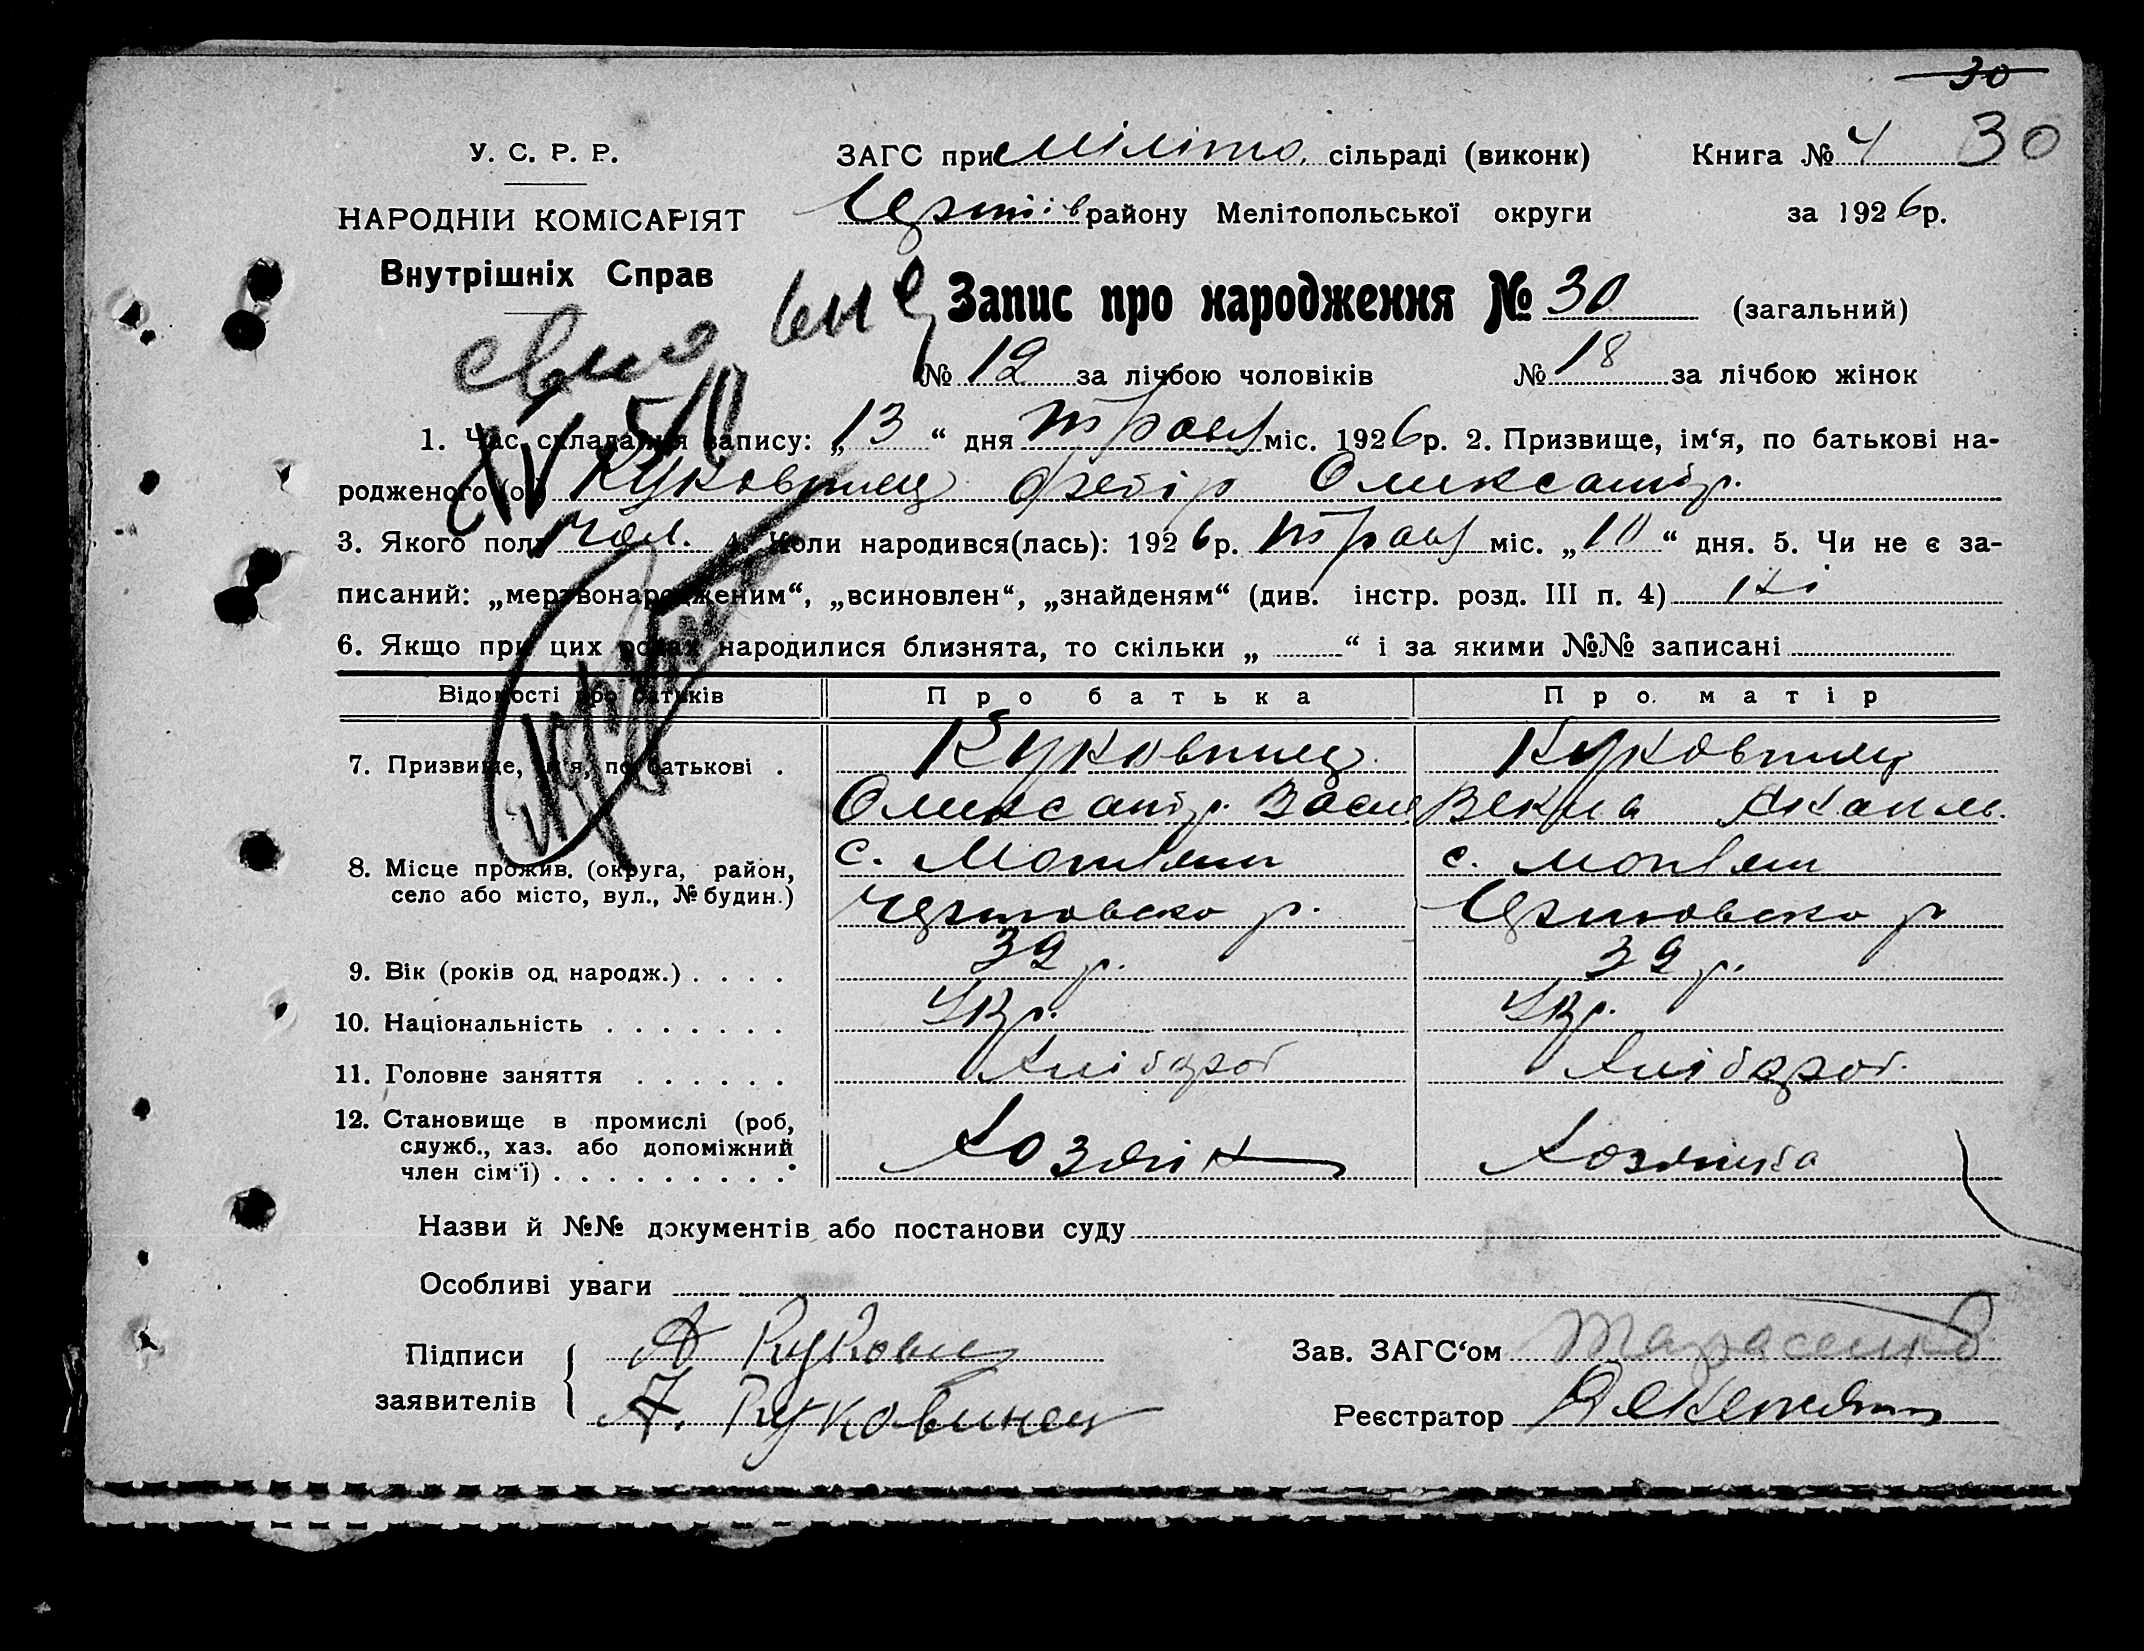 30
У. С. Р. Р.
ЗАГС при сільраді (виконк)
Книга № 4 30
НАРОДНІЙ КОМІСАРІЯТ
району Мелітопольської округи
за 1926р.
Внутрішніх Справ
Запис про народження № 30 (загальний)
№ 12 за лічбою чоловіків № 18 за лічбою жінок
1. Час складання запису: „13“ дня трав міс. 1926р. 2. Призвище, ім‘я, по батькові на-
родженого Куковинец Федір Олександр.
3. Якого полу чол. 4. Коли народився(лась): 1926р. трав міс. „10“ дня. 5. Чи не є за-
писаний: „мертвонародженим“, „всиновлен“, „знайденям“ (див. інстр. розд. III п. 4) Ні
6. Якщо при цих родах народилися близнята, то скільки „ “ і за якими №№ записані
Відомості про батьків Про батька Про матір
7. Призвище, ім‘я, по батькові . Куковинец Куковинец
Олександр. Васил
8. Місце прожив. (округа, район, с. с.
село або місто, вул., № будин.) р. р
9. Вік (років од народж.) . . . . 39 р. 39 р.
10. Національність . . . . . . . Укр. Укр.
11. Головне заняття . . . . . . Хлібороб Хлібороб.
12. Становище в промислі (роб,
служб., хаз. або допоміжний Хозяін Хозяйка
член сім‘ї) . . . . . . . . .
Назви й №№ документів або постанови суду
Особливі уваги
Підписи А Куковинец Зав. ЗАГС‘ом Тарасенко
заявителів А. Куковинец Реєстратор